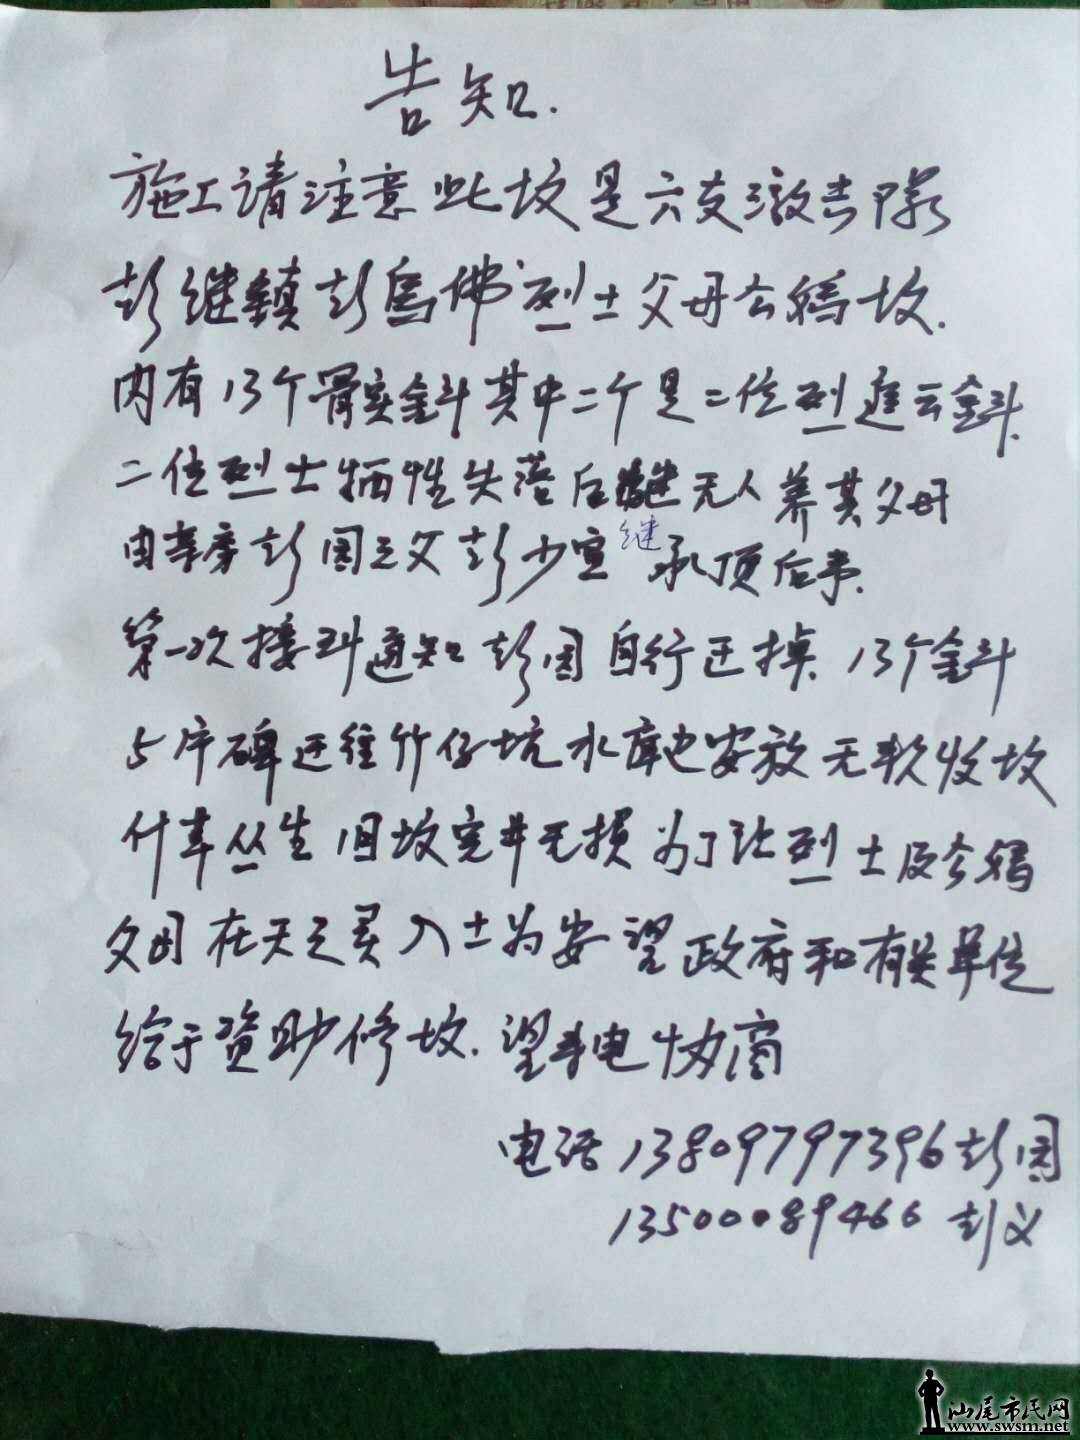 告知.
施工请注意此坟是六支激击队
彭继镇彭马佛烈士父母公妈坟.
内有13个骨实金斗其中二个是二位烈 金斗.
二位烈士牺牲失落后继无人养其父母
由 房彭园之父彭少宣继承顶后事.
第一次接到通知彭园自行迁掉.13个金斗
5片碑迁往竹仔坑水库边安放无 收坟
什草丛生旧坟完井无损为了让烈士及公妈
父母在天之灵入土为安望政府和有关单位
给于资助修坟.望来电协商
电话13809797396彭园
13500089466 彭义
汕尾市民网
www.swsm.net